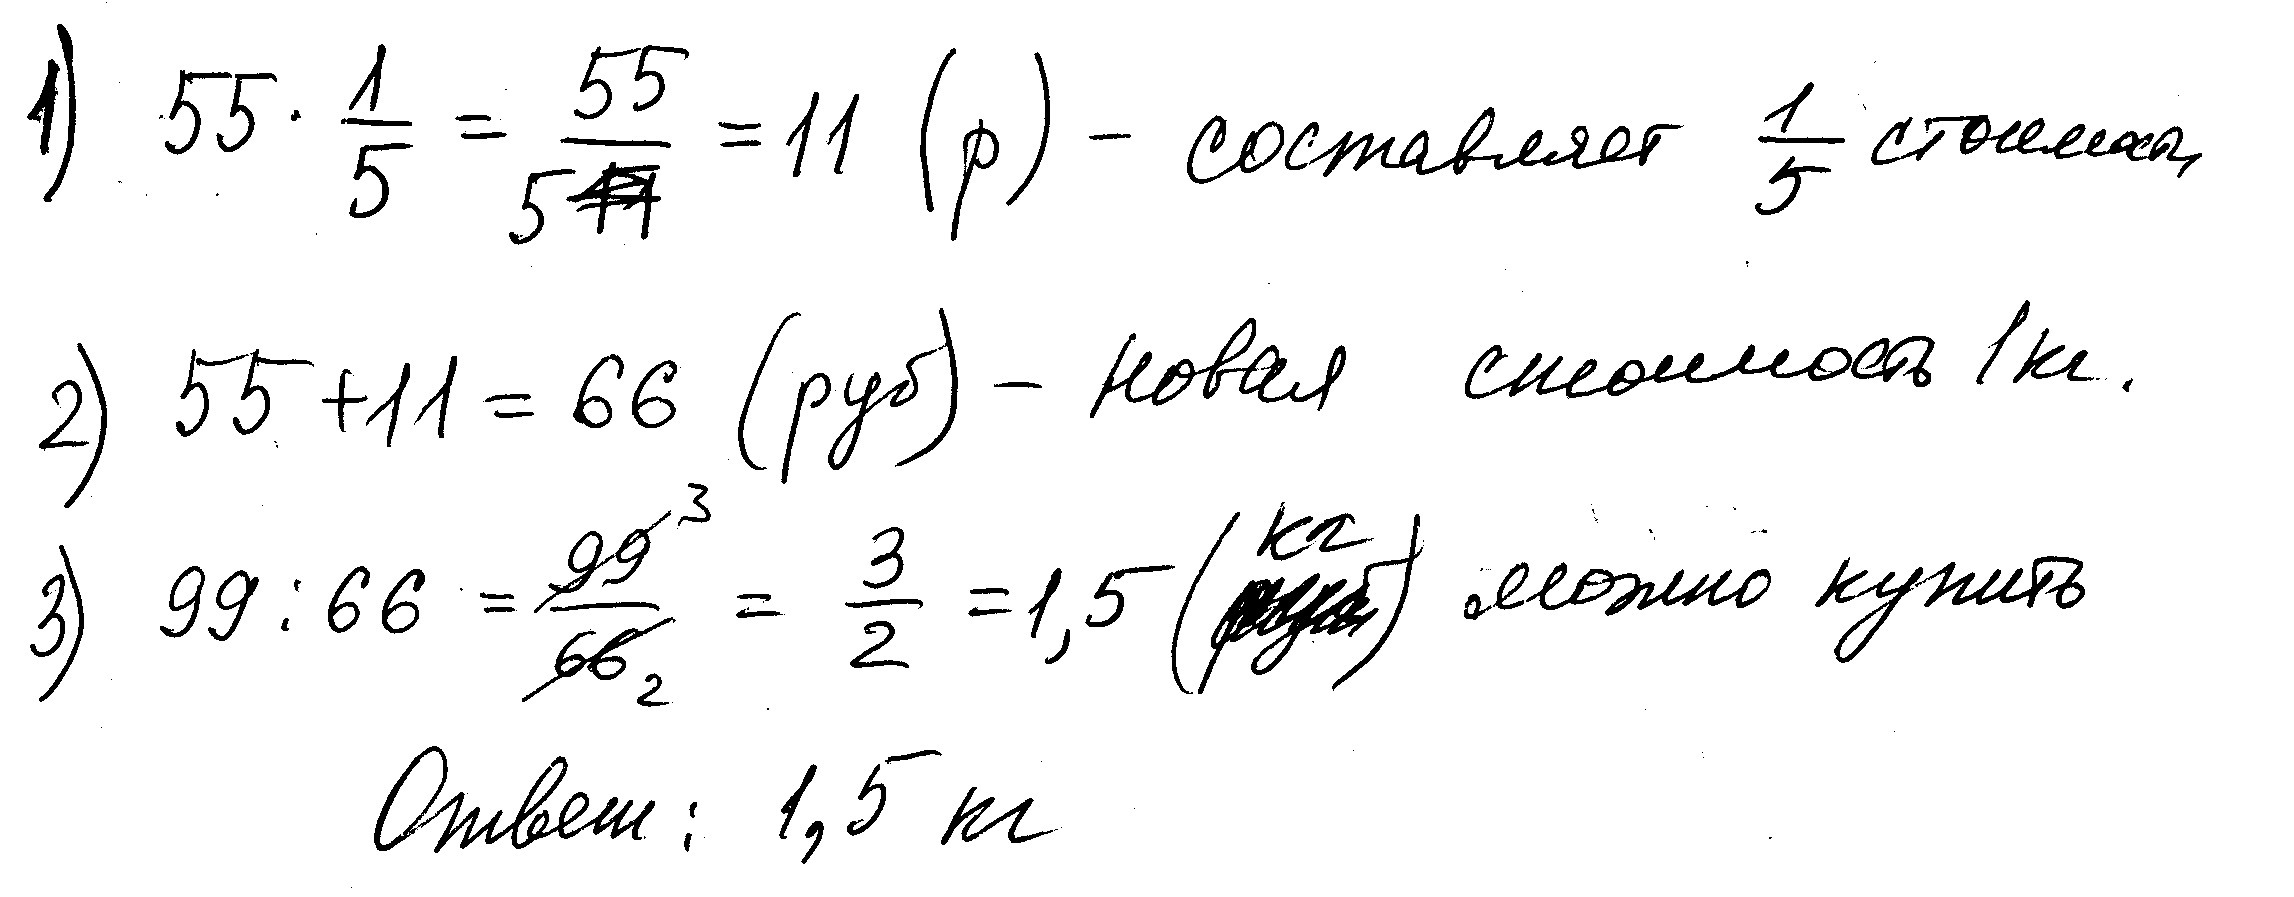 1) 55 · 1/5 = 55/5 = 11 (р) – составляет 1/5 стоимости
2) 55 + 11 = 66 (руб) – новая стоимость 1 кг.
3) 99 : 66 = 99 3/66 2 = 3/2 = 1,5 (кг) можно купить
Ответ: 1,5 кг